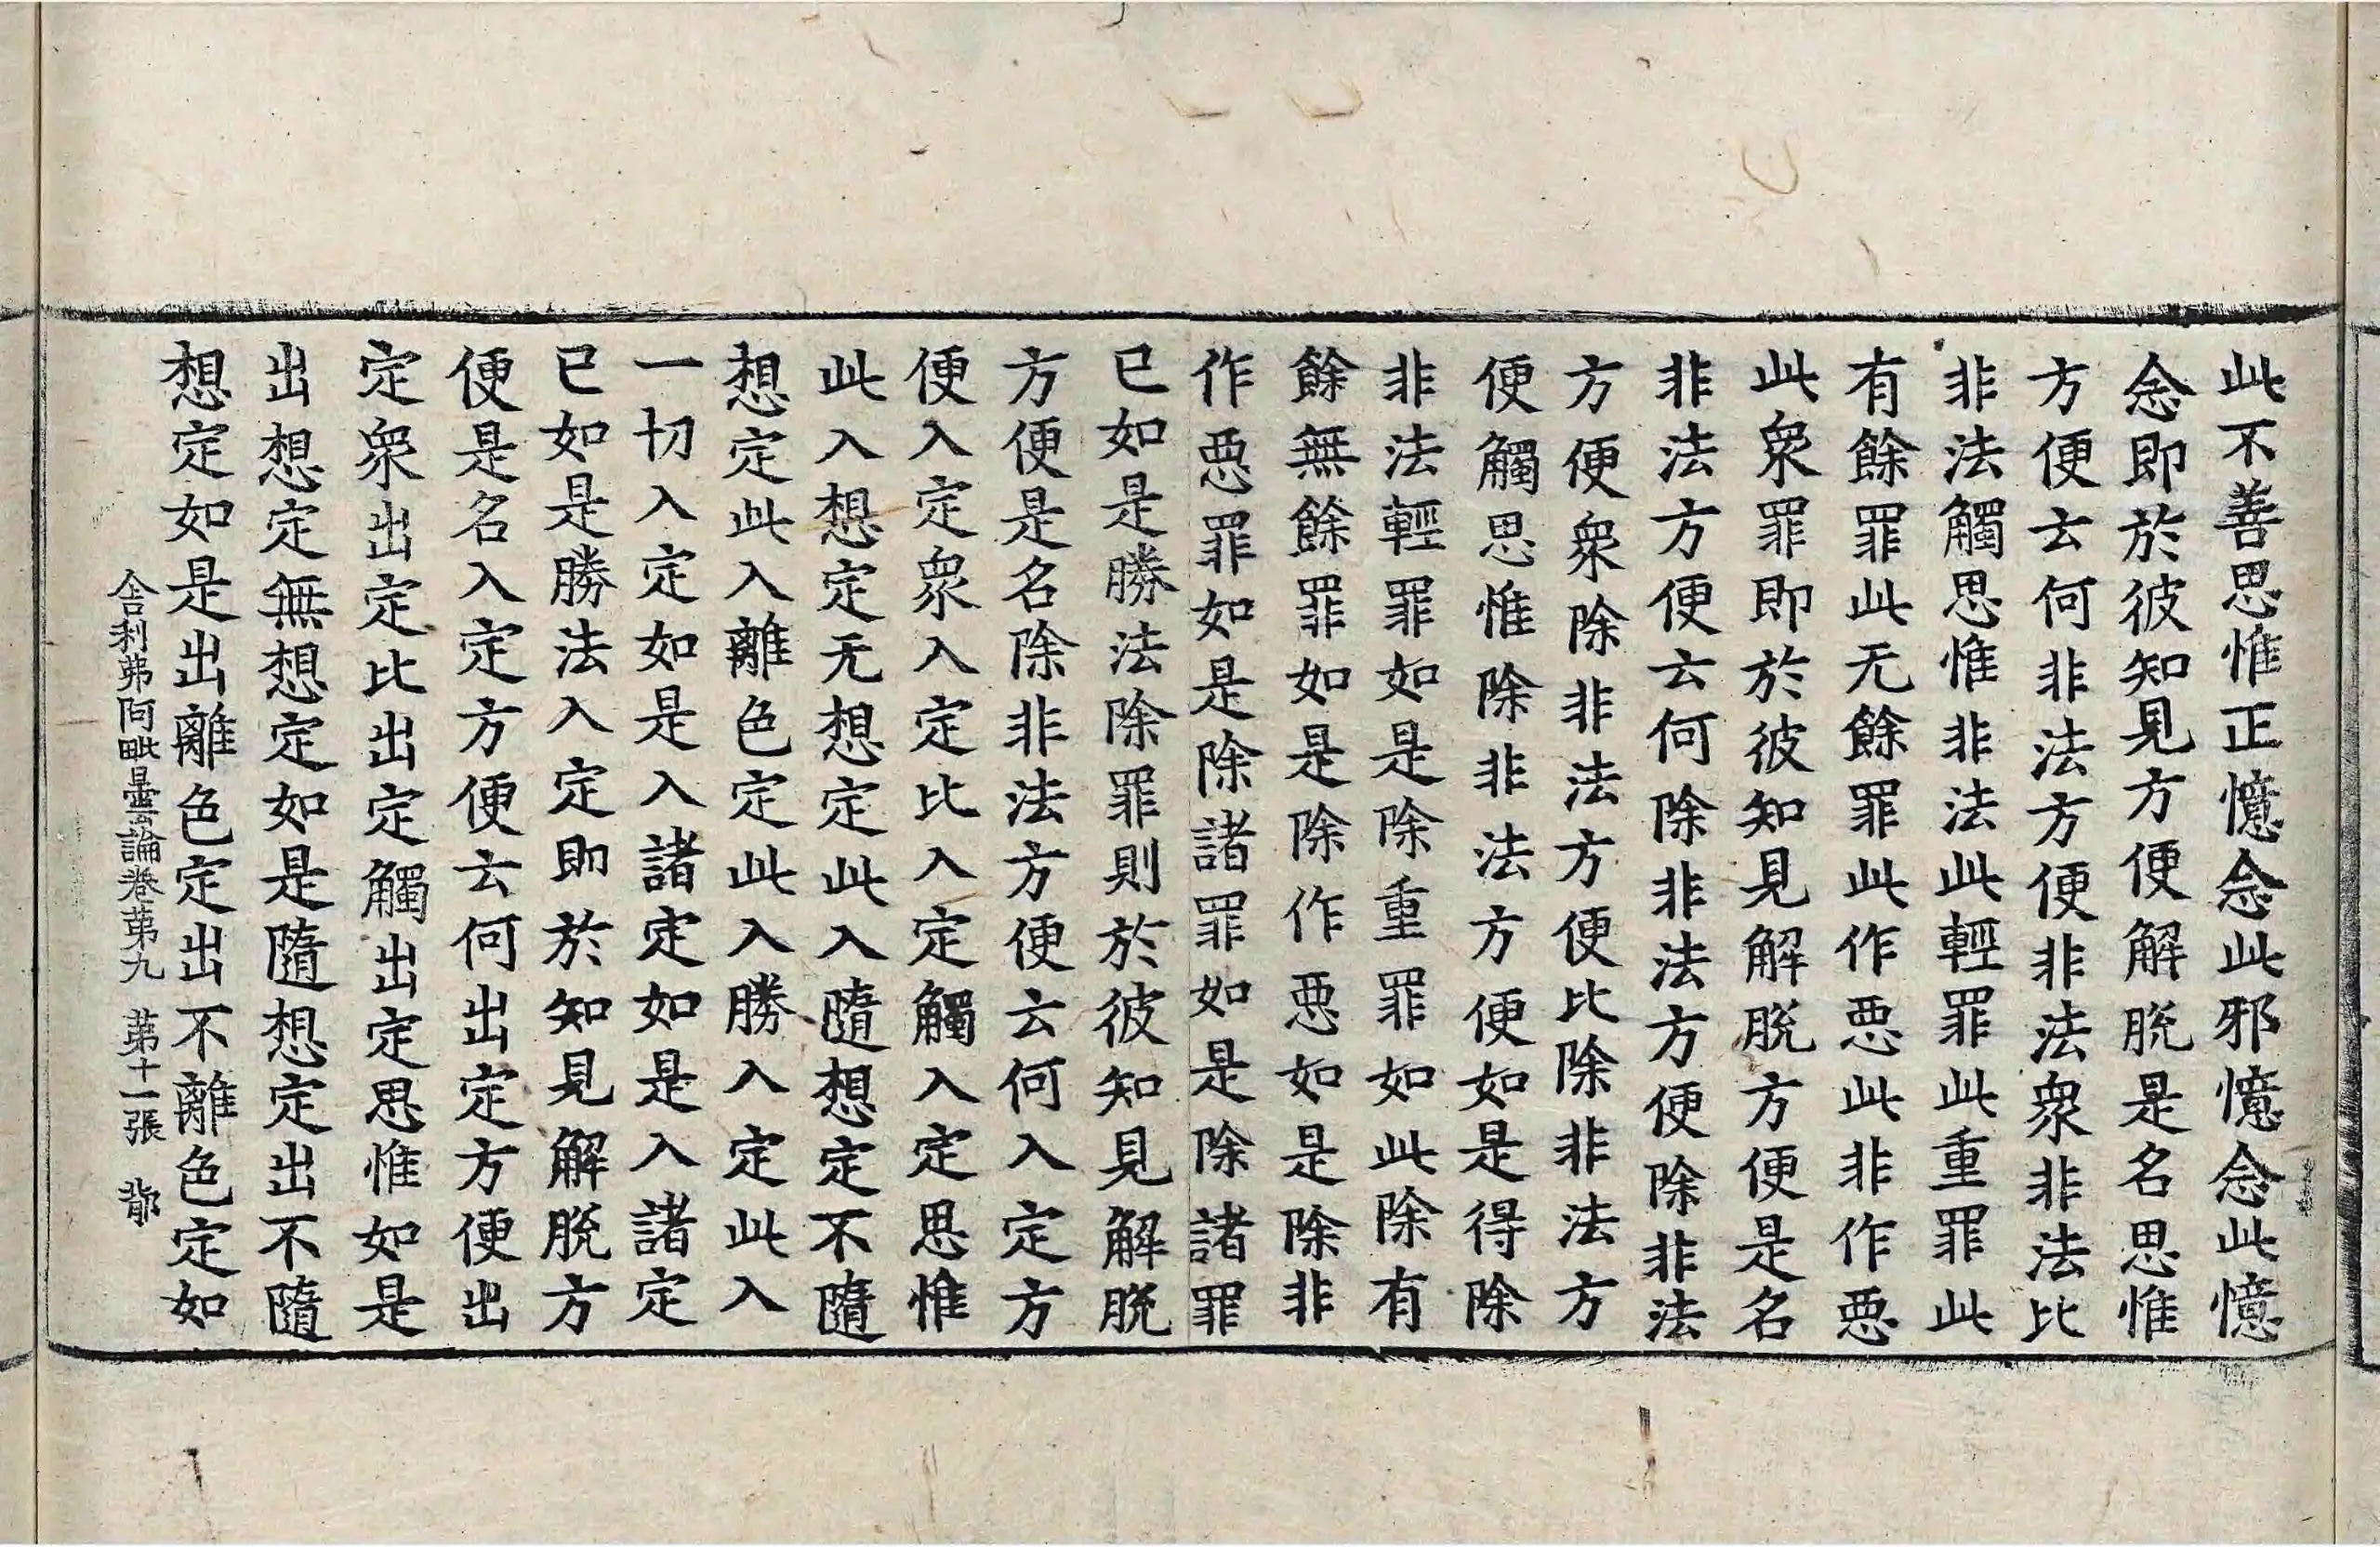 此不善思惟正憶念此邪憶念此憶
念即於彼知見方便解脱是名思惟
方便云何非法方便非法衆非法比
非法觸思惟非法此輕罪此重罪此
有餘罪此无餘罪此作惡此非作惡
此衆罪即於彼知見解脱方便是名
非法方便云何除非法方便除非法
方便衆除非法方便比除非法方
便觸思惟除非法方便如是得除
非法輕罪如是除重罪如此除有
餘無餘罪如是除作惡如是除非
作惡罪如是除諸罪如是除諸罪
已如是勝法除罪則於彼知見解脱
方便是名除非法方便云何入定方
便入定衆入定比入定觸入定思惟
此入想定无想定此入隨想定不隨
想定此入離色定此入勝入定此入
一切入定如是入諸定如是入諸定
已如是勝法入定即於知見解脱方
便是名入定方便云何出定方便出
定衆出定比出定觸出定思惟如是
出想定無想定如是隨想定出不隨
想定如是出離色定出不離色定如
舍利弗阿毗曇論卷苐九 苐十一張